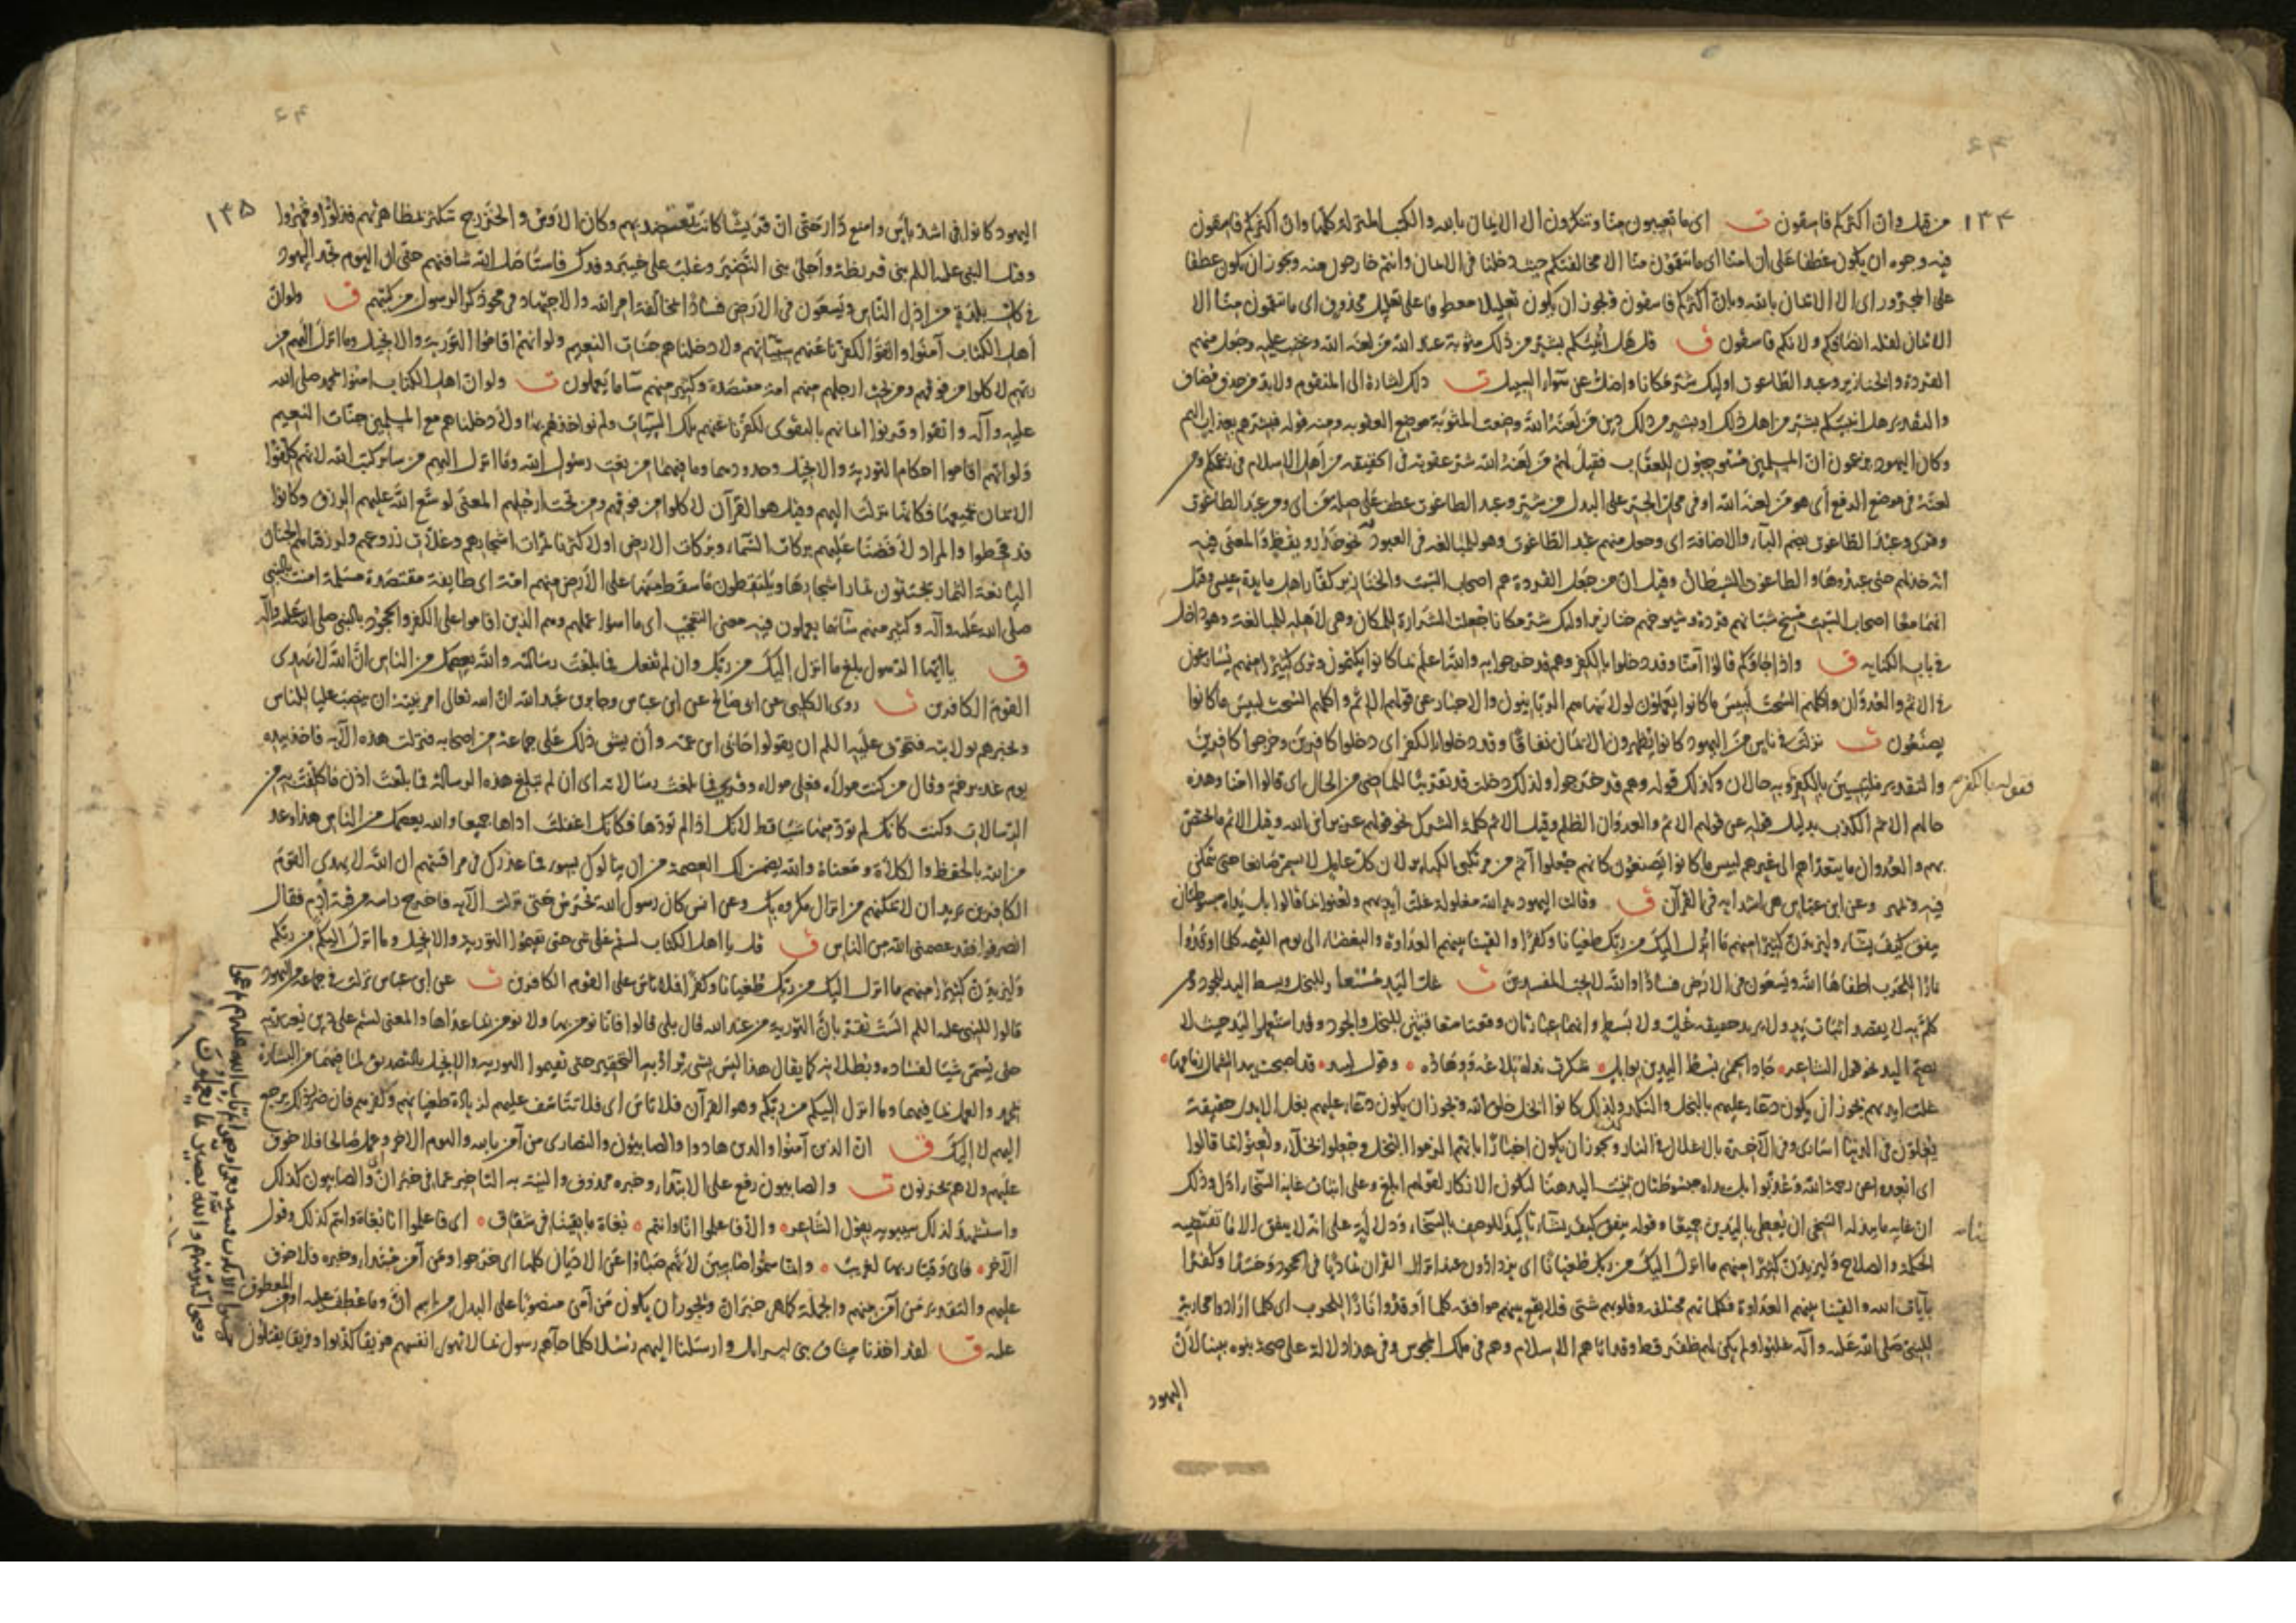 ١٣٤
من قبل وان اكثركم فاسقون ت اى ما تعيبون منا وتنكرون الا الايمان بالله والكتب المنزلة كلها وان اكثركم فاسقون
فيه وجوه ان يكون عطفا على ان امنا اى ما تنقمون منا الا مخالفتكم حيث دخلنا فى الايمان وانتم خارجون منه ويجوز ان يكون عطفا
على المجرور اى الا الايمان بالله وبان اكثركم فاسقون ويجوز ان يكون تعليلا معطوفا على تعليل محذوف اى ما تنقمون منا الا
الايمان لقلة انصافكم ولانكم فاسقون ق قل هل انبئكم بشر من ذلك مثوبة عند الله من لعنه الله وغضب عليه وجعل منهم
القردة والخنازير وعبد الطاغوت اوليك شر مكانا واضل عن سواء السبيل ت ذلك اشارة الى المنقوم ولابد من حذف مضاف
والتقدير هل انبئكم بشر من اهل ذلك او بشر من ذلك دين من لعنه الله وضعت المثوبة موضع العقوبة ومنه قوله فبشرهم بعذاب اليم
وكان اليهود يزعمون ان المسلمين مستوجبون للعقاب فقيل لهم من لعنه الله شر عقوبة فى الحقيقة من اهل الاسلام فى زعمكم ومن
لعنه فى موضع الرفع اى هو من لعنه الله او فى محل الجر على البدل من شر وعبد الطاغوت عطف على صلة من اى ومن عبد الطاغوت
وقرى وعبد الطاغوت بضم الباء والاضافة اى وجعل منهم عبد الطاغوت وهو للمبالغة فى العبودية نحو حذر ويقظ والمعنى فيه
انه خذلهم حتى عبدوها والطاغوت الشيطان وقيل ان من جعل القردة هم اصحاب السبت والخنازير كفار اهل مايدة عيسى وقيل
انهما معا اصحاب السبت مسخ شبانهم قردة وشيوخهم خنازير اوليك شر مكانا جعلت الشرارة للمكان وهى لاهله للمبالغة وهو داخل
فى باب الكناية ق واذا جاؤكم قالوا آمنا وقد دخلوا بالكفر وهم قد خرجوا به والله اعلم بما كانوا يكتمون وترى كثيرا منهم يسارعون
فى الاثم والعدوان واكلهم السحت لبيس ما كانوا يعملون لولا ينهاهم الربانيون والاحبار عن قولهم الاثم واكلهم السحت لبيس ما كانوا
يصنعون ت نزلت فى ناس من اليهود كانوا يظهرون الايمان نفاقا وقد دخلوا بالكفر اى دخلوا كافرين وخرجوا كافرين
والتقدير ملتبسين بالكفر وبه حالان وكذلك قوله وهم قد خرجوا ولذلك دخلت قد تقريبا للماضى من الحال اى قالوا امنا وهذه
حالهم الاثم الكذب بدليل قوله عن قولهم الاثم والعدوان الظلم وقيل الاثم كلمة الشرك نحو قولهم عزير ابن الله وقيل الاثم ما يختص
بهم والعدوان ما يتعداهم الى غيرهم لبيس ما كانوا يصنعون كانهم جعلوا آثم من مرتكبى الكباير لان كل عامل لا يسمى صانعا حتى يتمكن
فيه ويمهر وعن ابن عباس هى اشد اية فى القرآن ق وقالت اليهود يد الله مغلولة غلت ايديهم ولعنوا بما قالوا بل يداه مبسوطتان
ينفق كيف يشاء وليزيدن كثيرا منهم ما انزل اليك من ربك طغيانا وكفرا والقينا بينهم العداوة والبغضاء الى يوم القيمة كلما اوقدوا
نارا للحرب اطفاها الله ويسعون فى الارض فسادا والله لا يحب المفسدين ت غلت اليد مستعار للبخل وبسط اليد للجود ومن
تكلم به لا يقصد اثبات يد ولا يريد حقيقة غل ولا بسط وانهما عبارتان وقعتا متعاقبتين للبخل والجود وقد استعملوا اليد حيث لا
يصح اليد نحو قول الشاعر جاد الحمى بسط اليدين بوابل شكرت نداه تلاعه ووهاده وقول لبيد قد اصبحت بيد الشمال زمامها
غلت ايديهم يجوز ان يكون دعاء عليهم بالبخل والنكد ولذلك كانوا ابخل خلق الله ويجوز ان يكون دعاء عليهم بغل الايدى حقيقة
يغلون فى الدنيا اسارى وفى الآخرة بالاغلال فى النار ويجوز ان يكون اخبارا بانهم الزموا البخل وجعلوا بخلاء ولعنوا بما قالوا
اى ابعدوا عن رحمة الله وعذبوا بل يداه مبسوطتان ثنيت اليد هنا ليكون الانكار لقولهم ابلغ وعلى اثبات غاية السخاء ادل وذلك
ان غاية ما يبذله السخى ان يعطى باليدين جميعا وقوله ينفق كيف يشاء تاكيد للوصف بالسخاء ودلالة على انه لا ينفق الا ما تقتضيه
الحكمة والصلاح وليزيدن كثيرا منهم ما انزل اليك من ربك طغيانا اى يزدادون عند انزال القران تماديا فى الجحود وحسدا وكفرا
بآيات الله والقينا بينهم العداوة فكلماتهم مختلفة وقلوبهم شتى فلا يقع بينهم موافقة كلما اوقدوا نارا للحرب اى كلما ارادوا محاربة
للنبى صلى الله عليه وآله غلبوا ولم يكن لهم ظفر قط وقد اتاهم الاسلام وهم فى ملك المجوس وفى هذا دلالة على صحة نبوة نبينا لان
اليهود
١٣٥
اليهود كانوا فى اشد باس وامنع دار حتى ان قريشا كانت تعتضد بهم وكان الاوس والخزرج تتكثر بمظاهرتهم فذلوا وقهروا
وقتل النبى عليه السلم بنى قريظة واجلى بنى النضير وغلب على خيبر وفدك فاستاصل الله شافتهم حتى ان اليوم تجد اليهود
فى كل بلدة من اذل الناس ويسعون فى الارض فسادا بمخالفة امر الله والاجتهاد فى محو ذكر الرسول من كتبهم ق ولو ان
اهل الكتاب آمنوا واتقوا لكفرنا عنهم سيئاتهم ولادخلناهم جنات النعيم ولو انهم اقاموا التورية والانجيل وما انزل اليهم من
ربهم لاكلوا من فوقهم ومن تحت ارجلهم منهم امة مقتصدة وكثير منهم ساء ما يعملون ت ولو ان اهل الكتاب امنوا بمحمد صلى الله
عليه وآله واتقوا وقرنوا ايمانهم بالتقوى لكفرنا عنهم تلك السيئات ولم نواخذهم بها ولادخلناهم مع المسلمين جنات النعيم
ولو انهم اقاموا احكام التورية والانجيل وحدودهما وما فيهما من نعت رسول الله وما انزل اليهم من ساير كتب الله لانهم كلفوا
الايمان بجميعها فكانما نزلت اليهم وقيل هو القرآن لاكلوا من فوقهم ومن تحت ارجلهم المعنى لوسع الله عليهم الرزق وكانوا
قد قحطوا والمراد لافضنا عليهم بركات السماء وبركات الارض او لاكثرنا ثمرات اشجارهم وغلات زروعهم ولرزقناهم الجنان
اليانعة الثمار يجتنون ثمار اشجارها ويلتقطون ما سقط منها على الارض منهم امة اى طايفة مقتصدة مسلمة امنت بالنبى
صلى الله عليه وآله وكثير منهم ساء ما يعملون فيه معنى التعجب اى ما اسوا عملهم وهم الذين اقاموا على الكفر والجحود بالنبى صلى الله عليه وآله
ق يا ايها الرسول بلغ ما انزل اليك من ربك وان لم تفعل فما بلغت رسالته والله يعصمك من الناس ان الله لا يهدى
القوم الكافرين ت روى الكلبى عن ابى صالح عن ابن عباس وجابر بن عبد الله ان الله تعالى امر نبيه ان ينصب عليا للناس
ويخبرهم بولايته فتخوف عليه السلم ان يقولوا حابى ابن عمه وأن يشق ذلك على جماعة من اصحابه فنزلت هذه الآية فاخذ بيده
يوم غدير خم وقال من كنت مولاه فعلى مولاه وقرى فما بلغت رسالاته اى ان لم تبلغ هذه الرسالة فما بلغت اذن ما كلفت به من
الرسالات وكنت كانك لم تؤد منها شيئا قط لانك اذا لم تؤدها فكانك اغفلت اداءها جميعا والله يعصمك من الناس هذا وعد
من الله بالحفظ والكلاة ومعناه والله يضمن لك العصمة من ان ينالوك بسوء فما عذرك فى مراقبتهم ان الله لا يهدى القوم
الكافرين يريد ان لا يمكنهم من انزال مكروه بك وعن انس كان رسول الله يحرس حتى نزلت الآية فاخرج راسه من قبة ادم فقال
انصرفوا فقد عصمنى الله من الناس ق قل يا اهل الكتاب لستم على شى حتى تقيموا التورية والانجيل وما انزل اليكم من ربكم
وليزيدن كثيرا منهم ما انزل اليك من ربك طغيانا وكفرا فلا تاس على القوم الكافرين ت عن ابن عباس نزلت فى جماعة من اليهود
قالوا للنبى عليه السلم الست تقر بان التورية من عند الله قال بلى قالوا فانا نومن بها ولا نومن بما عداها والمعنى لستم على دين يعتد به
حتى يسمى شيئا لفساده وبطلانه كما يقال هذا ليس بشى يراد به التحقير حتى تقيموا التورية والانجيل بالتصديق لما فيهما من البشارة
بمحمد والعمل بما فيهما وما انزل اليكم من ربكم وهو القرآن فلا تاس اى فلا تتاسف عليهم لزيادة طغيانهم وكفرهم فان ضرر ذلك يرجع
اليهم لا اليك ق ان الذين آمنوا والذين هادوا والصابيون والنصارى من آمن بالله واليوم الاخر وعمل صالحا فلا خوف
عليهم ولا هم يحزنون ت والصابيون رفع على الابتداء وخبره محذوف والنية به التاخير عما فى خبر ان والصابيون كذلك
واستشهد لذلك سيبويه بقول الشاعر والا فاعلموا انا وانتم بغاة ما بقينا فى شقاق اى فاعلموا انا بغاة وانتم كذلك وقول
الآخر فانى وقيار بها لغريب وانما سموا صابيين لانهم صباوا عن الاديان كلها اى خرجوا ومن آمن مبتدا وخبره فلا خوف
عليهم والتقدير من آمن منهم والجملة كما هى خبر ان ويجوز ان يكون من آمن منصوبا على البدل من اسم ان وما عطف عليه او من المعطوف
عليه ق لقد اخذنا ميثاق بنى اسرايل وارسلنا اليهم رسلا كلما جآهم رسول بما لا تهوى انفسهم فريقا كذبوا وفريقا يقتلون
وحسبوا الا تكون فتنة فعموا وصموا ثم تاب الله عليهم ثم عموا
وصموا كثير منهم والله بصير بما يعملون